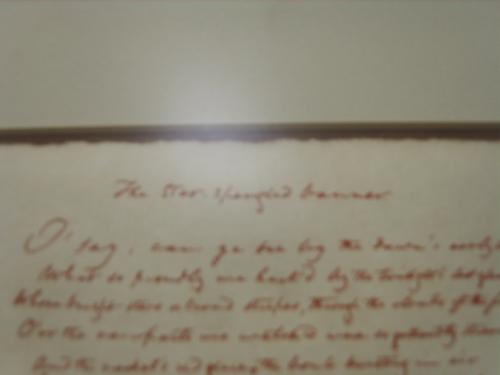 The Star-spangled banner
O! say, can ye see by the dawn's early
What so proudly we hail'd by the twilight's last
Whose bright stars & broad stripes, through the clouds of the
O'er the ramparts we watch'd were so gallantly
And the rocket's red glare, the bomb bursting in air